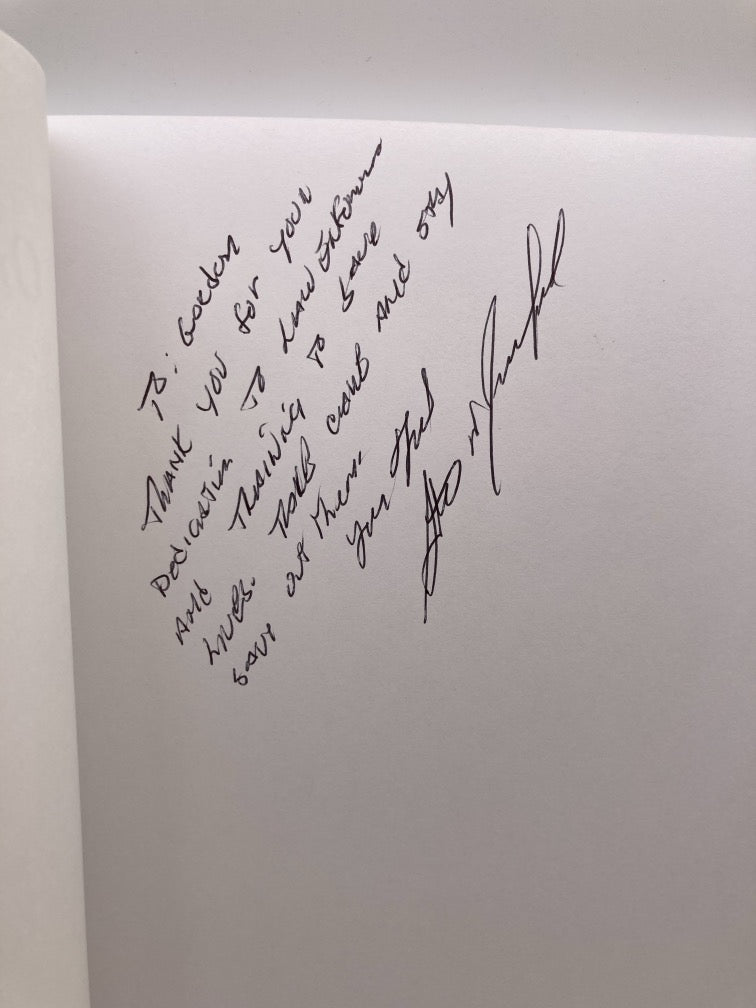 To: Gordon
THANK YOU for your
Dedication To Law Enforcement
And TRAINING TO save
Lives. TAKE CARE And STAY
SAFE out there.
Your friend